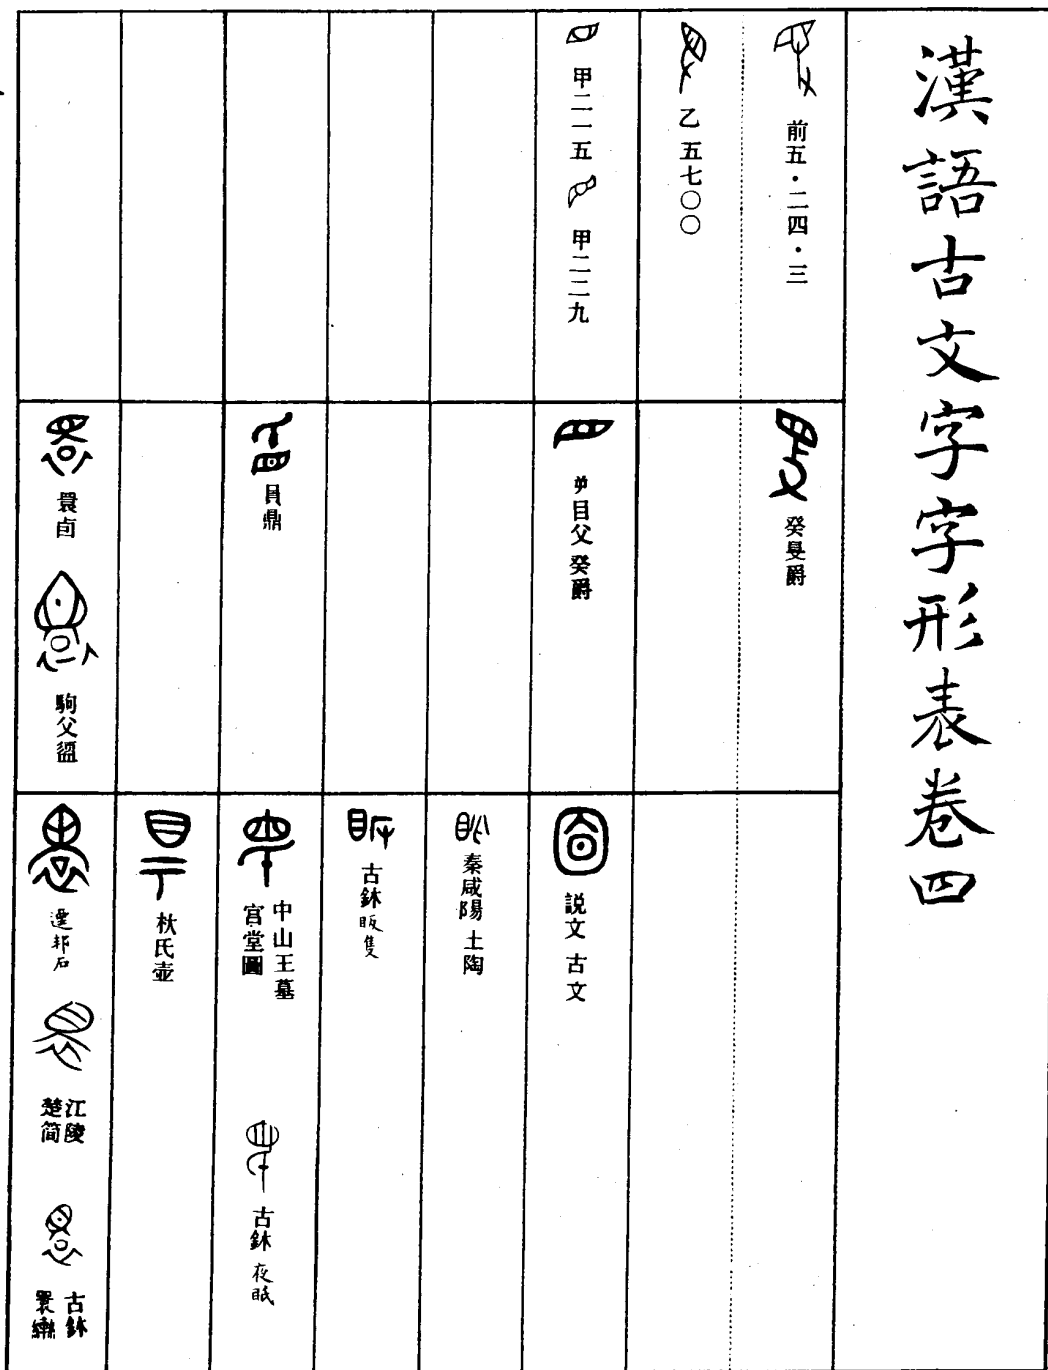 漢語古文字字形表卷四
前五·二四·三
癸𥄎爵
乙五七〇〇
甲二一五
甲二二九
目父癸爵
説文古文
秦咸陽土陶
古鉢 眅隻
員鼎
中山王墓
宮堂圖
古鉢 夜眂
杕氏壺
睘卣
駒父盨
江陵
楚简
古鉢